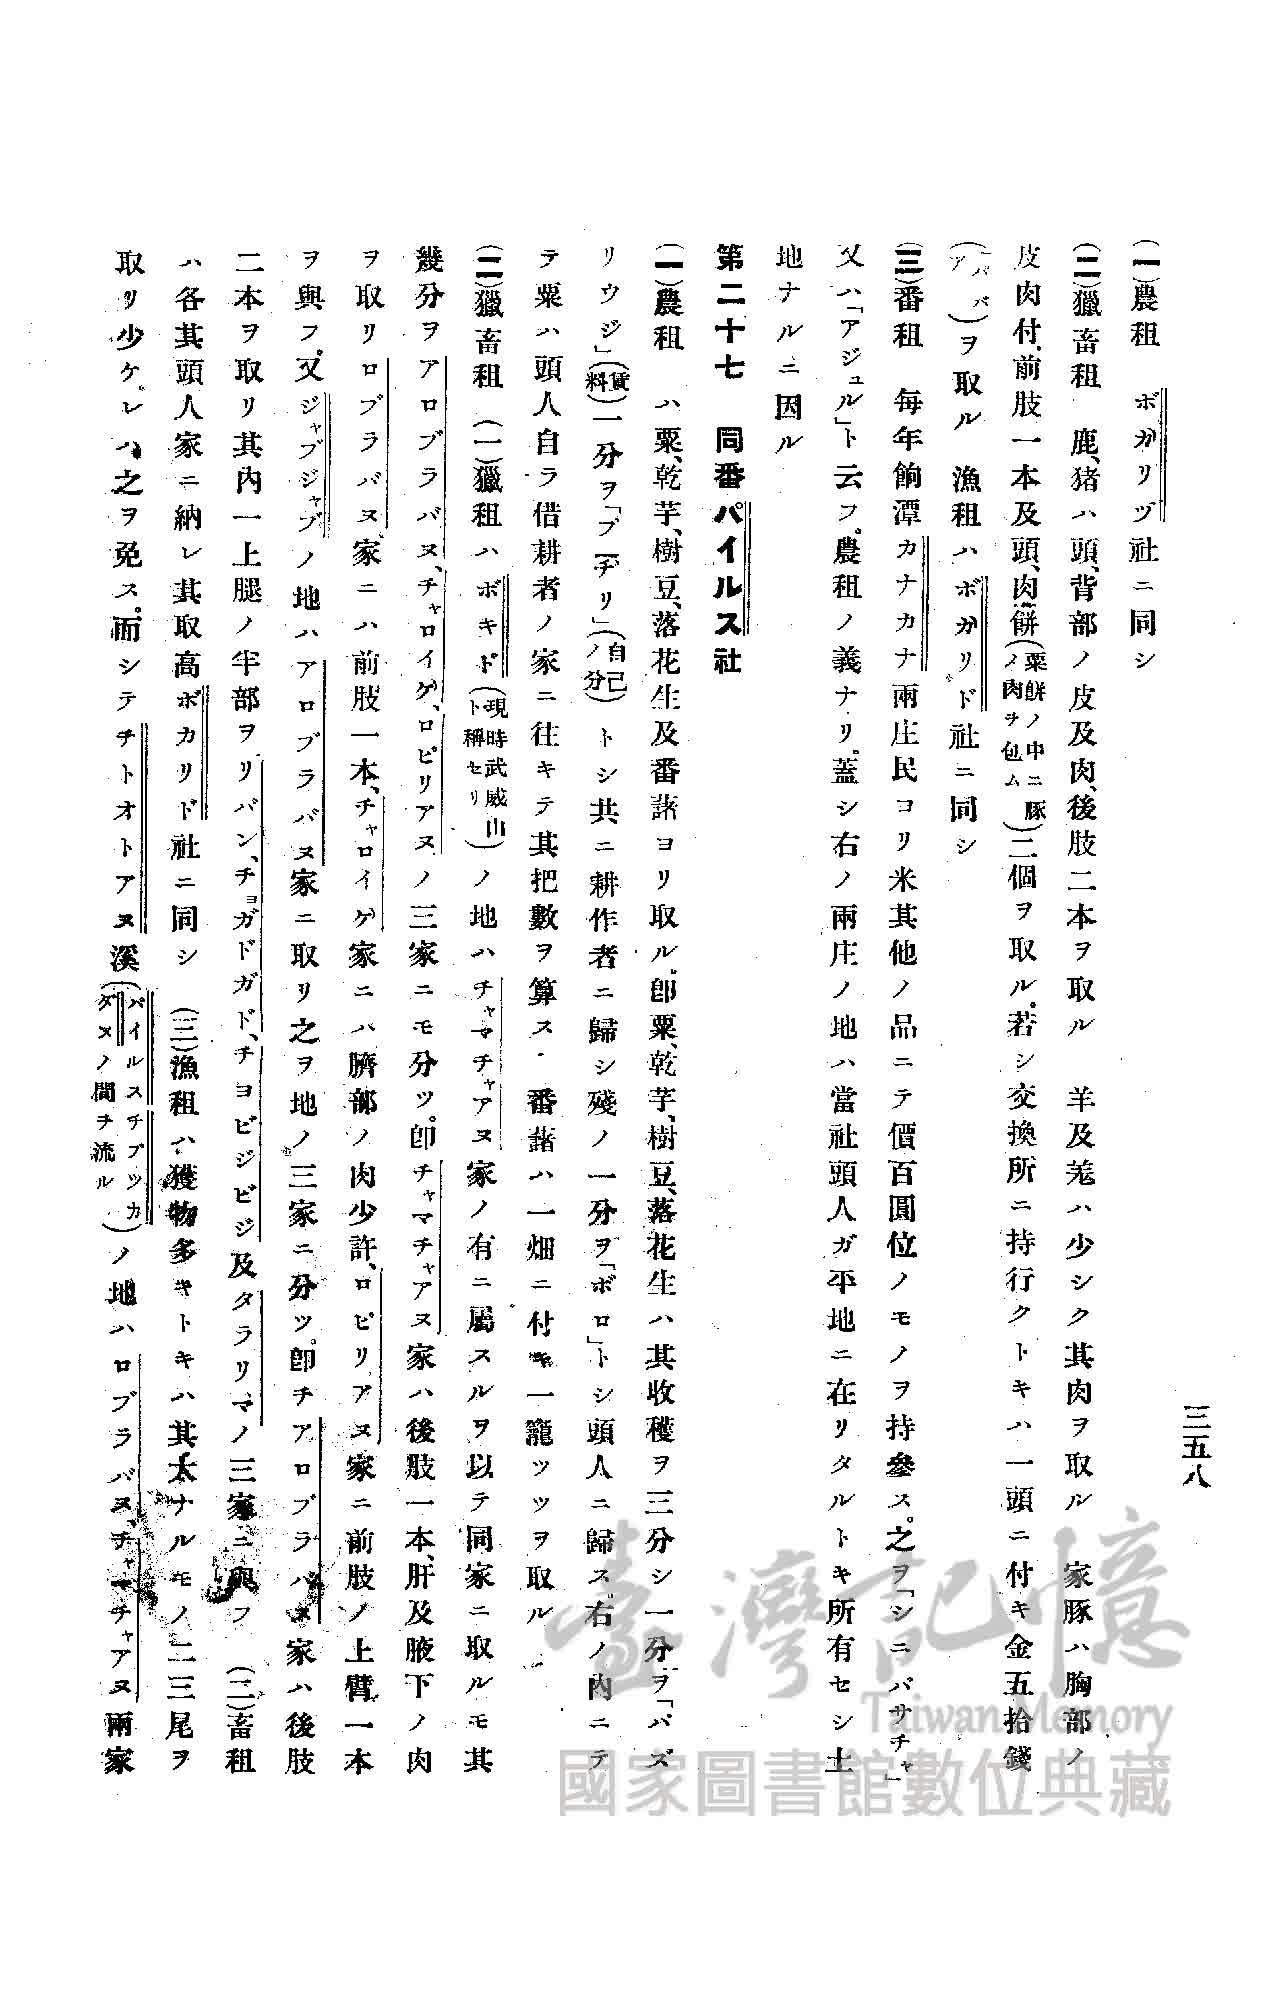 三五八
(一)農租　ボガリヅ社ニ同シ
(二)獵畜租　鹿、猪ハ頭、背部ノ皮及肉、後肢二本ヲ取ル　羊及羗ハ少シク其肉ヲ取ル　家豚ハ胸部ノ
皮肉付、前肢一本及頭、肉餅(粟餅ノ中ニ豚ノ肉ヲ包ム)二個ヲ取ル。若シ交換所ニ持行クトキハ一頭ニ付キ金五拾錢
(ババア)ヲ取ル　漁租ハボガリド社ニ同シ
(三)番租　毎年餉潭カナカナ兩庄民コリ米其他ノ品ニテ價百圓位ノモノヲ持參ス。之ヲ「シニバサチャ」
又ハ「アジュル」ト云フ。農租ノ義ナリ。蓋シ右ノ兩庄ノ地ハ當社頭人ガ平地ニ在リタルトキ所有セシ土
地ナルニ因ル
第二十七　同番パイルス社
(一)農租　ハ粟、乾芋、樹豆、落花生及番藷ヨリ取ル。卽粟、乾芋、樹豆、落花生ハ其收穫ヲ三分シ一分ヲ「バズ
リウジ」(賃料)一分ヲ「ブーチリ」(自己ノ分)トシ共ニ耕作者ニ歸シ殘ノ一分ヲ「ボロ」トシ頭人ニ歸ス。右ノ內ニテ
テ粟ハ頭人自ラ借耕者ノ家ニ往キテ其把數ヲ算ス・番藷ハ一畑ニ付キ一籠ツツヲ取ル
(二)獵畜租　(一)獵租ハボキド(現時武威山ト稱セリ)ノ地ハチャマチャアヌ家ノ有ニ屬スルヲ以テ同家ニ取ルモ其
幾分ヲアロブラバヌ、チャロイゲ、ロピリアヌノ三家ニモ分ツ。卽チャマチャアヌ家ハ後肢一本、肝及腋下ノ肉
ヲ取リロブラバヌ家ニハ前肢一本、チャロイゲ家ニハ臍部ノ肉少許、ロピリアヌ家ニ前肢ノ上臂一本
ヲ與フ。又ジャブジャブノ地ハアロブラバヌ家ニ取リ之ヲ地ノ三家ニ分ツ。卽チアロブラバヌ家ハ後肢
二本ヲ取リ其內一上腿ノ半部ヲリバン、チョガドガド、チヨビジビジ及タラリマノ三家ニ與フ　(二)畜租
ハ各其頭人家ニ納レ其取高ボカリド社ニ同シ　(三)漁租ハ獲物多キトキハ其太ナルモノ二三尾ヲ
取リ少ケレハ之ヲ免ス。而シテチトオトアヌ溪(パイルスチブツカダスノ間ヲ流ル)ノ地ハロブラバヌ、チャマチャアヌ兩家
臺灣記憶
Taiwan Memory
國家圖書館數位典藏